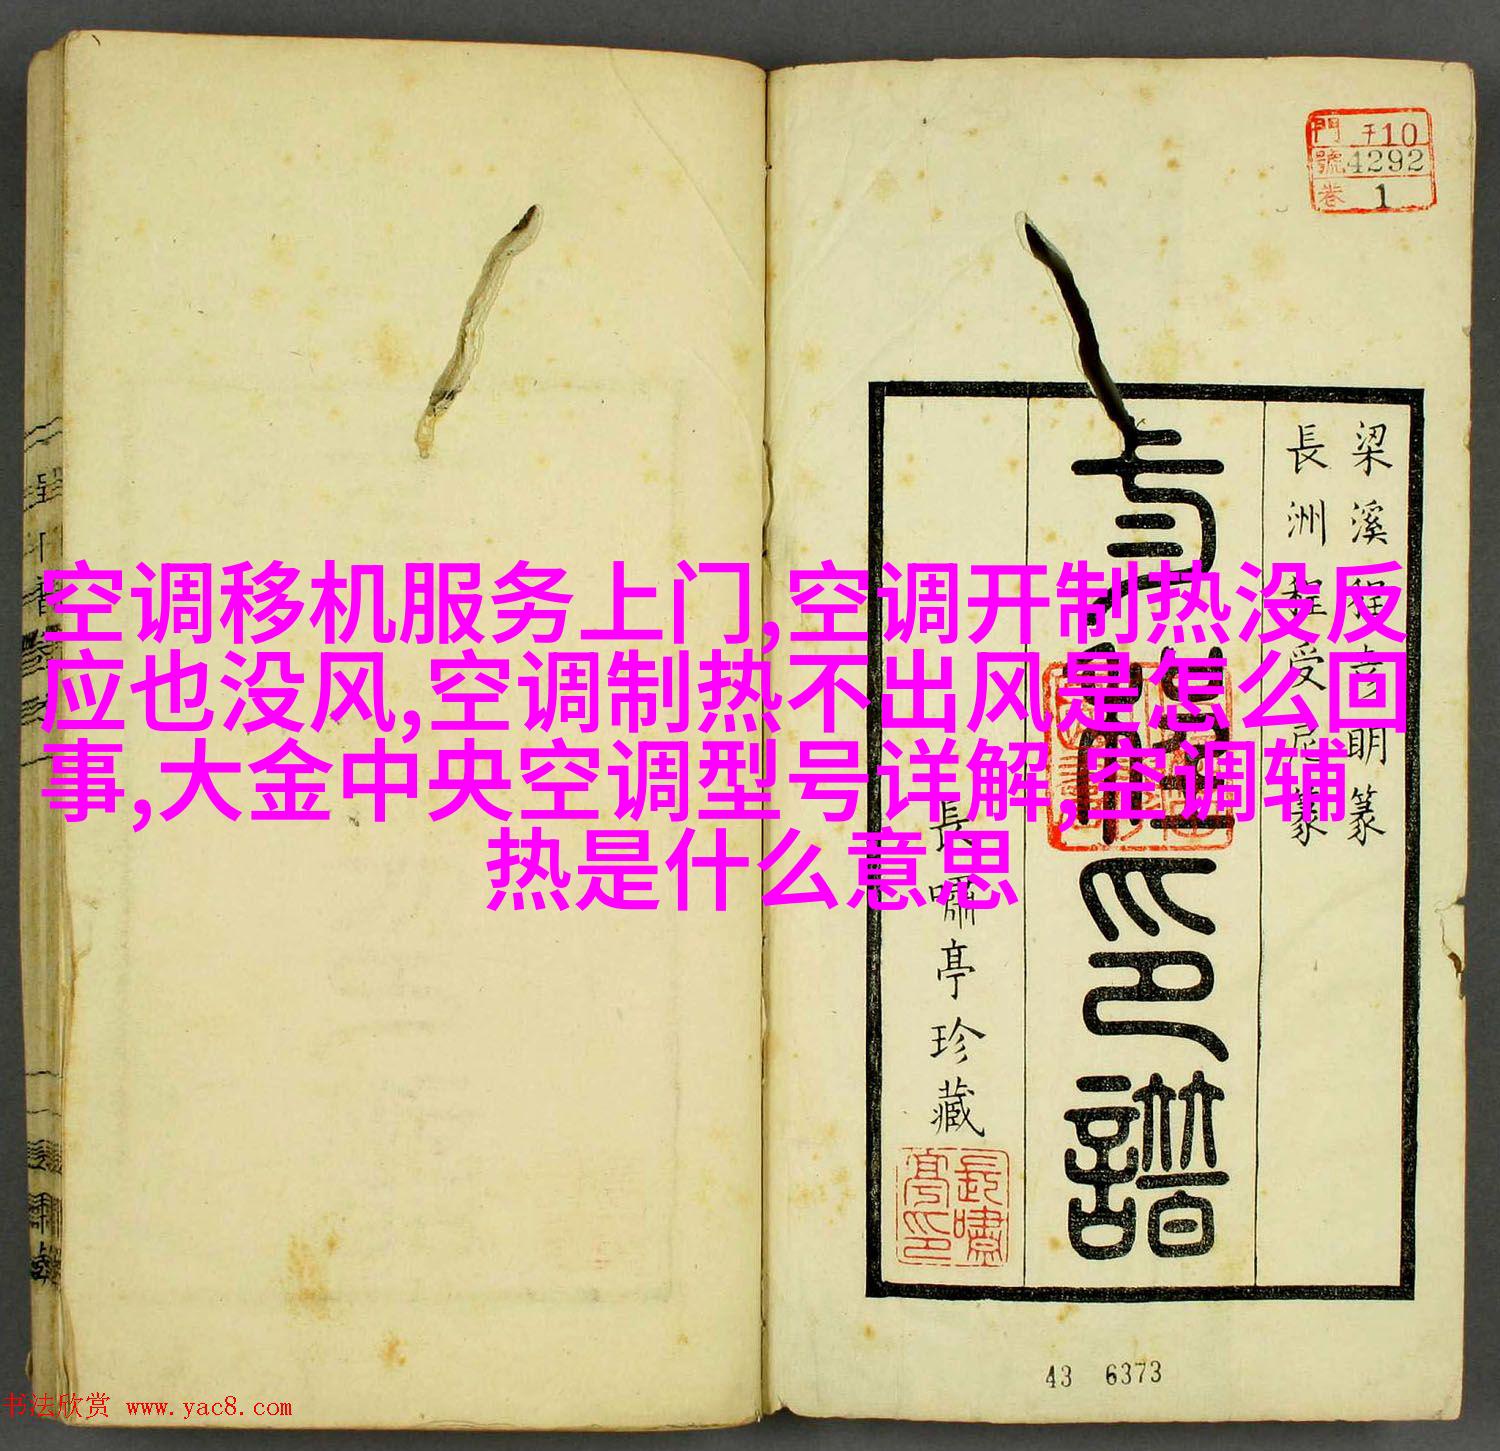 門 子10
號 4292
卷 1
梁溪程彦明篆
長洲程受尼篆
印譜
長嘯亭珍藏
長嘯亭印
空调移机服务上门,空调开制热没反
应也没风,空调制热不出风是怎么回
事,大金中央空调型号详解,空调辅
热是什么意思
43 6373
书法欣赏 www.yac8.com